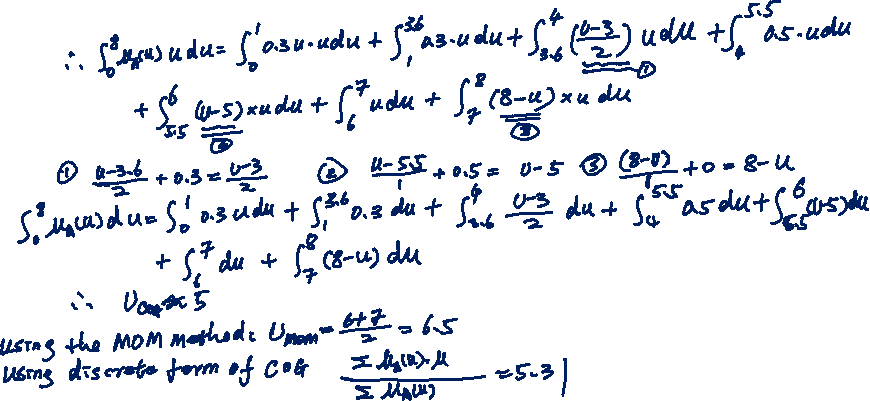 ∴ ∫₀⁸ μA(u) u du = ∫₀¹ 0.3u·u du + ∫₁^3.6 0.3·u du + ∫_3.6^4 (u-3)/2 u du + ∫₄^5.5 0.5·u du
①
+ ∫_5.5^6 (u-5)×u du + ∫₆⁷ u du + ∫₇⁸ (8-u)×u du
② ③
① (u-3.6)/2 + 0.3 = (u-3)/2 ② (u-5.5)/1 + 0.5 = u-5 ③ (8-u)/1 + 0 = 8-u
∫₀⁸ μA(u) du = ∫₀¹ 0.3 u du + ∫₁^3.6 0.3 du + ∫_3.6^4 (u-3)/2 du + ∫₄^5.5 0.5 du + ∫_5.5^6 (u-5) du
+ ∫₆⁷ du + ∫₇⁸ (8-u) du
∴ U ≈ 5
using the MOM method: Umom = (6+7)/2 = 6.5
using discrete form of COG Σ μA(u)·μ / Σ μA(u) = 5.3